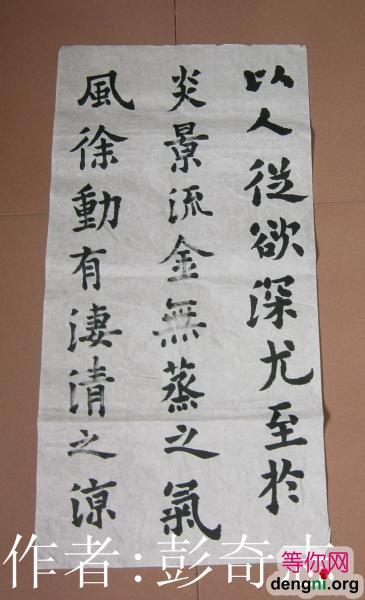 以人從欲深尤至於
炎景流金無蒸之氣
風徐動有淒清之涼
作者:彭奇
等你网
dengni.org